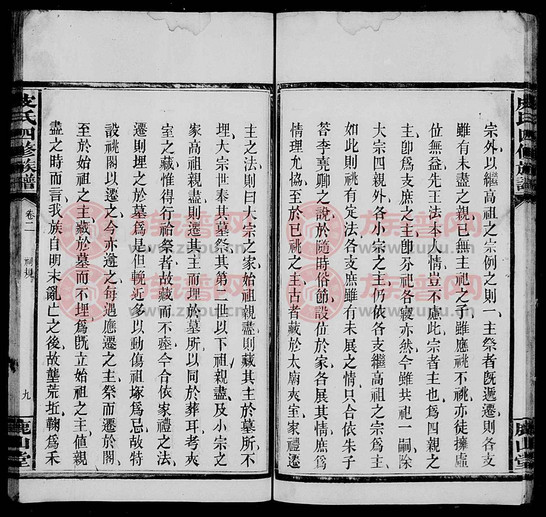 宗外以繼高祖之宗例之則一主祭者既遷遷則各支
雖有未盡之親已無主祀之人雖應祧不祧亦徒擁虛
位無益先王法本人情豈不慮此宗者主也爲四親之
主卽爲支庶之主卽分祀各寢亦然今雖共祀一嗣除
大宗四親外各小宗之主仍依各支繼高祖之宗而遷
如此則祧有定法各支庶雖有未展之情只合依朱子
答李堯卿之說於隨時俗節設位於家各展其情庶爲
情理允協至於已祧之主古者藏於太廟夾室家禮遷
主之法則曰大宗之家始祖親盡則藏其主於墓所不
埋大宗世奉其墓祭其第二世以下祖親盡及小宗之
家高祖親盡則遷其主而埋於墓所以同於葬耳考夾
室之藏惟得行祫祭者故藏而不瘞今合依家禮之法
遷則埋之於墓爲是但輓近多以動傷祖塚爲忌故特
設祧閣以遷之今亦遵之每遇應遷之主祭而遷於閣
至於始祖之主藏於墓而不埋爲旣立始祖之主値親
盡之時而言我族自明末亂亡之後故壟荒坵鞠爲禾
皮氏四修族譜
卷二
祠規
九
鹿山堂
皮氏四修族譜
鹿山堂
族譜网
www.zupu.cn